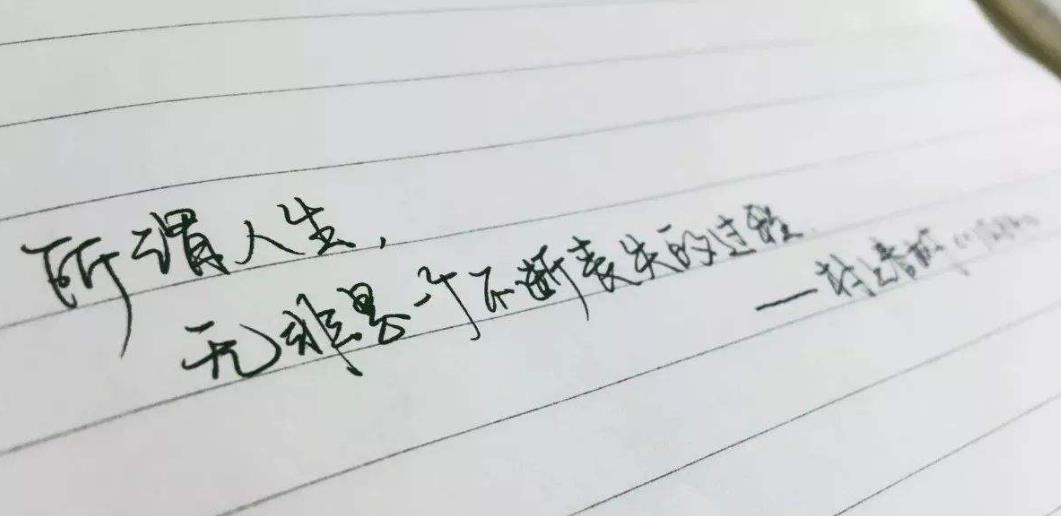 所谓人生，
无非是一个不断丧失的过程
——村上春树